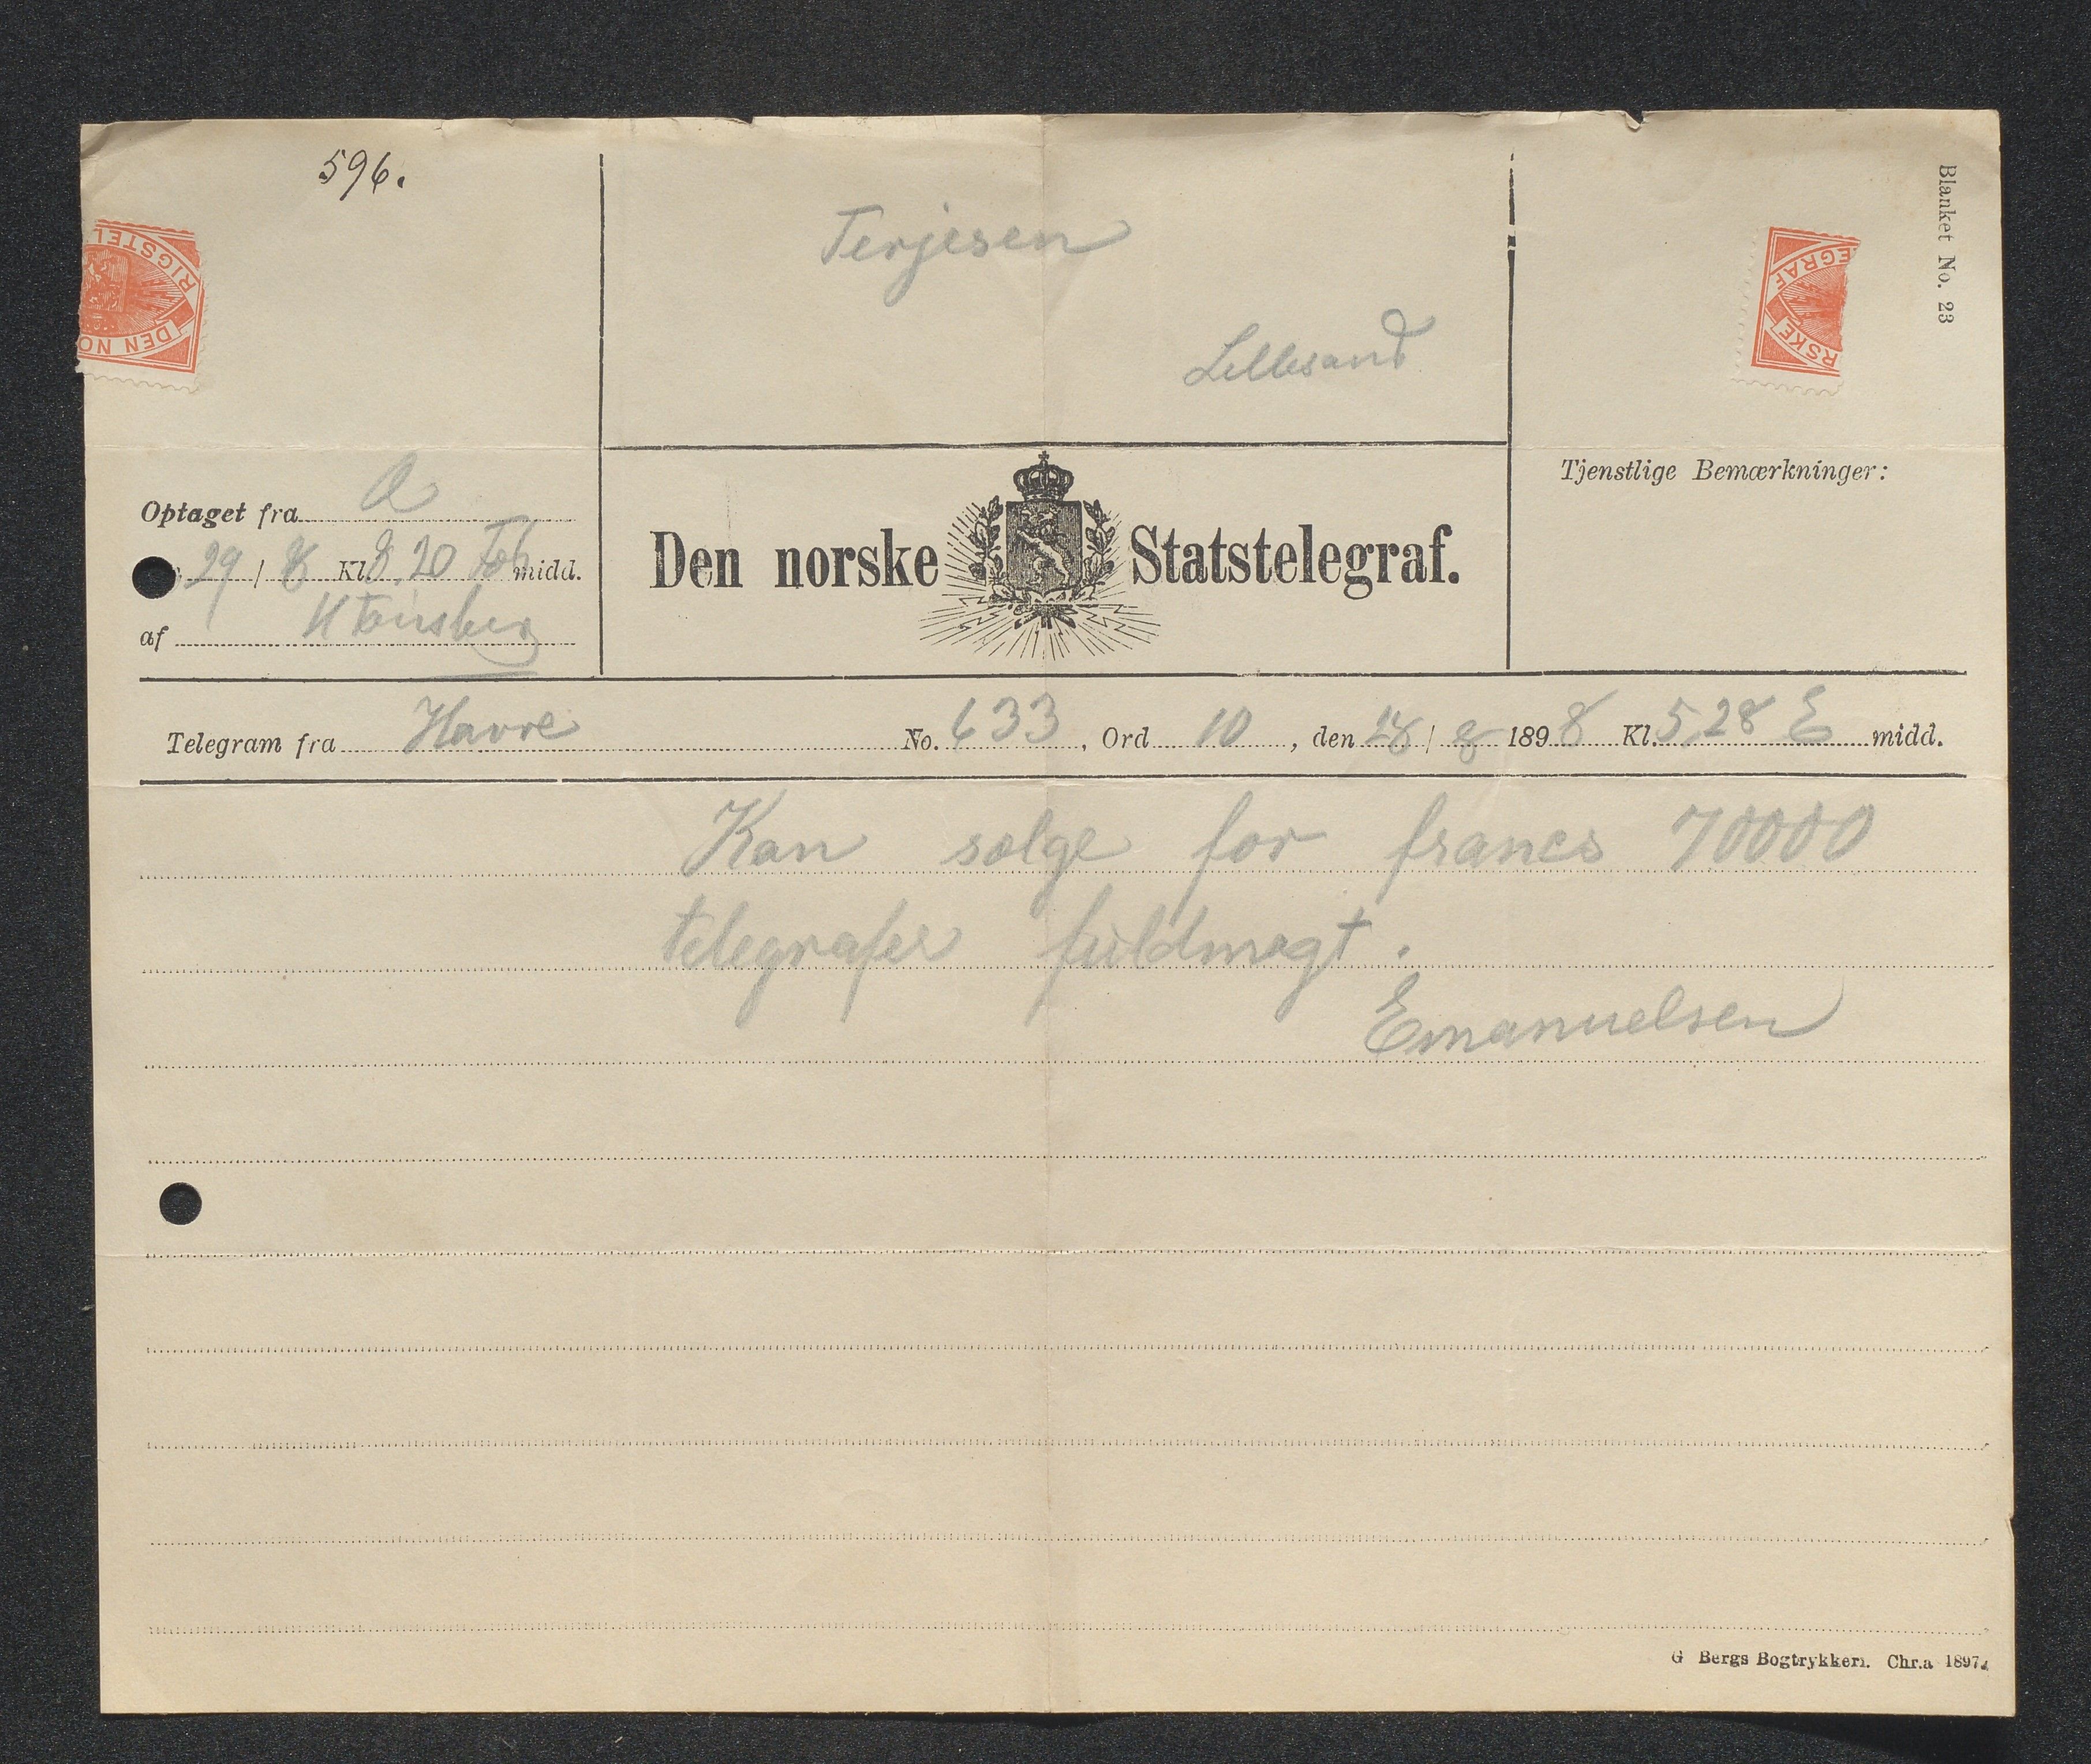 596.
Terjesen
Lillesand
Blanket No. 23
RIGSTEL
DEN NO
EGRAF
RSKE
Optaget fra A
29 / 8 Kl. 8.20 For midd.
af
Den norske Statstelegraf.
Tjenstlige Bemærkninger:
Telegram fra Havre No. 633, Ord 10, den 28 / 8 1898 Kl. 5,28 E midd.
Kan sælge for francs 70000
telegrafer fuldmagt.
Emanuelsen
G Bergs Bogtrykkeri. Chr.a 1897.